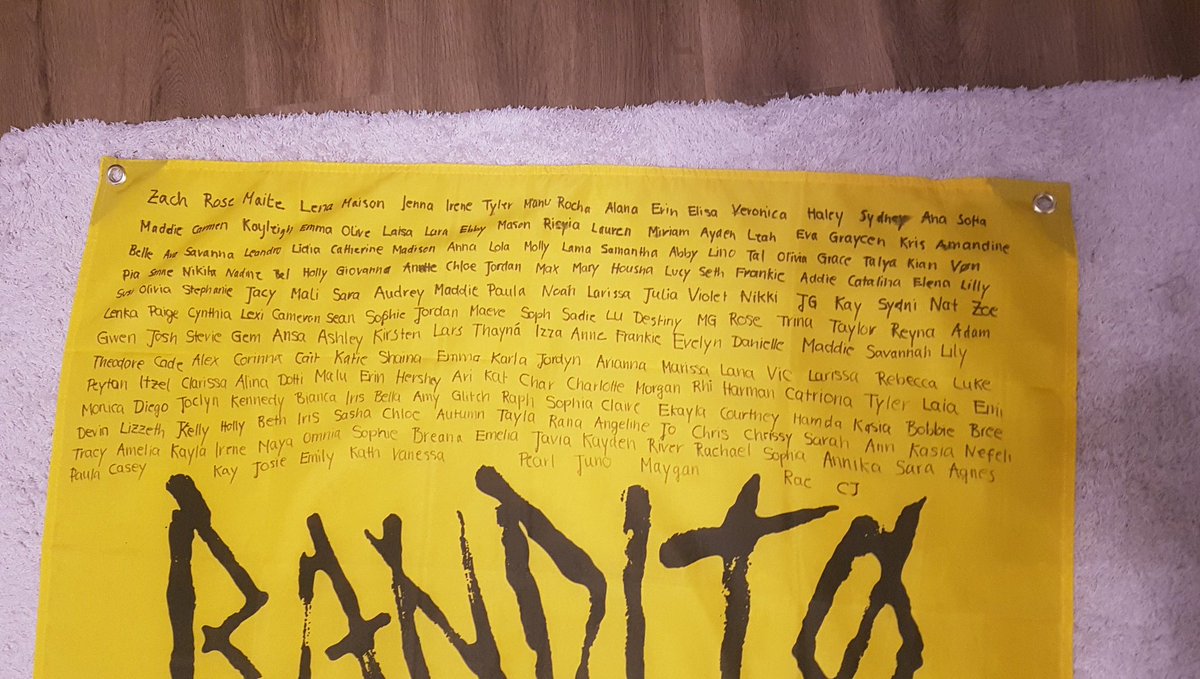 Zach Rose Maite Lena Maison Jenna Irene Tyler Manu Rocha Alana Erin Elisa Veronica Haley Sydney Ana Sofia
Maddie Carmen Kayleigh Emma Olive Laisa Lara Ebby Mason Lauren Miriam Ayden Leah Eva Graycen Kris Amandine
Belle Ava Savanna Leandro Lidia Catherine Madison Anna Lola Molly Lama Samantha Abby Lino Tal Olivia Grace Talya Kian Van
Pia Nikita Nadine Bel Holly Giovanna Chloe Jordan Max Mary Housha Lucy Seth Frankie Addie Catalina Elena Lilly
Olivia Stephanie Jacy Mali Sara Audrey Maddie Paula Noah Larissa Julia Violet Nikki JG Kay Sydni Nat Zoe
Lenka Paige Cynthia Lexi Cameron Sean Sophie Jordan Maeve Soph Sadie LU Destiny MG Rose Trina Taylor Reyna Adam
Gwen Josh Stevie Gem Ansa Ashley Kirsten Lars Thayná Izza Anne Frankie Evelyn Danielle Maddie Savannah Lily
Theodore Cade Alex Corinna Cait Katie Shaina Emma Karla Jordyn Arianna Marissa Lana Vic Larissa Rebecca Luke
Peyton Itzel Clarissa Alina Dotti Malu Erin Hershey Ari Kat Char Charlotte Morgan Rhi Harman Catriona Tyler Laia Emi
Monica Diego Joclyn Kennedy Bianca Iris Bella Amy Glitch Raph Sophia Claire Ekayla Courtney Hamda Kasia Bobbie Bree
Devin Lizzeth Kelly Holly Beth Iris Sasha Chloe Autumn Tayla Rana Angeline Jo Chris Chrissy Sarah Ann Kasia Nefeli
Tracy Amelia Kayla Irene Maya Omnia Sophie Breana Emelia Javia Kayden River Rachael Sopha Annika Sara Agnes
Paula Casey Kay Josie Emily Kath Vanessa Pearl Juno Maygan Rae CJ
BANDITO